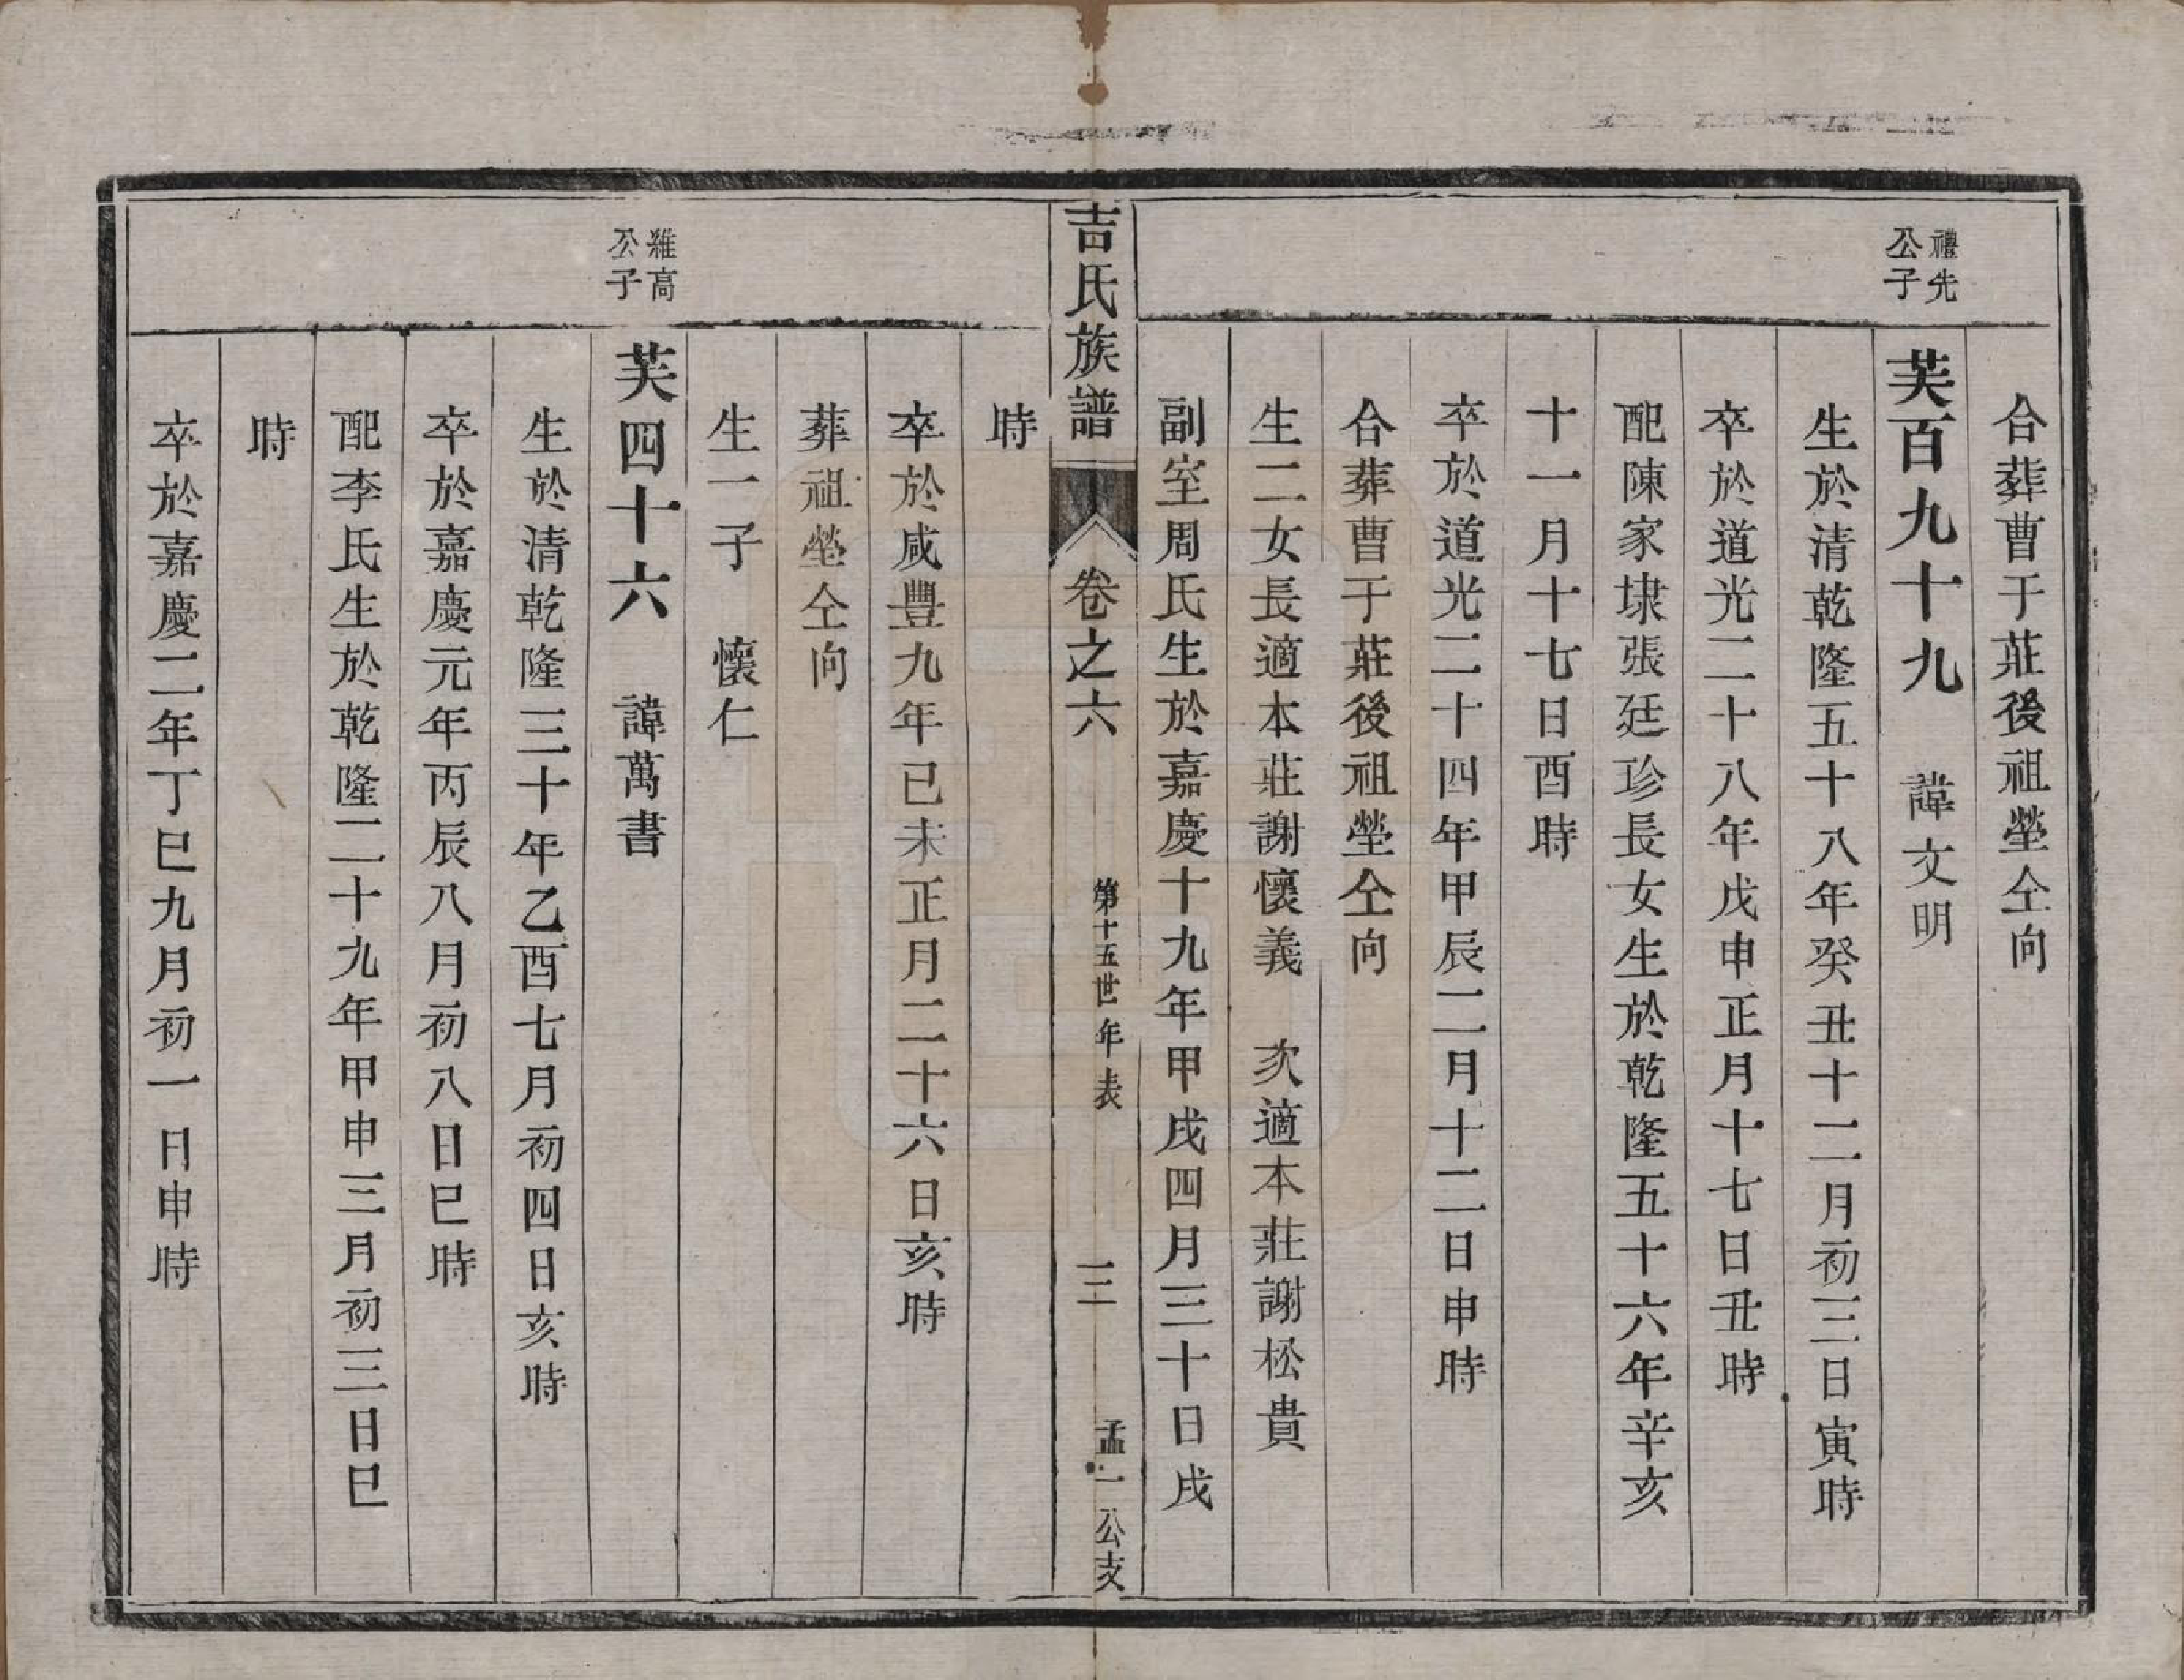 合葬曹于莊後祖塋仝向
禮先
公子
芙百九十九　諱文明
生於清乾隆五十八年癸丑十二月初三日寅時
卒於道光二十八年戊申正月十七日丑時
配陳家埭張廷珍長女生於乾隆五十六年辛亥
十一月十七日酉時
卒於道光二十四年甲辰二月十二日申時
合葬曹于莊後祖塋仝向
生二女長適本莊謝懷義　次適本莊謝松貴
副室周氏生於嘉慶十九年甲戌四月三十日戌
吉氏族譜　卷之六　第十五世年表　三　孟一公支
時
卒於咸豐九年已未正月二十六日亥時
葬祖塋仝向
生一子　懷仁
雑高
公子
芙四十六　諱萬書
生於清乾隆三十年乙酉七月初四日亥時
卒於嘉慶元年丙辰八月初八日巳時
配李氏生於乾隆二十九年甲申三月初三日巳
時
卒於嘉慶二年丁巳九月初一日申時